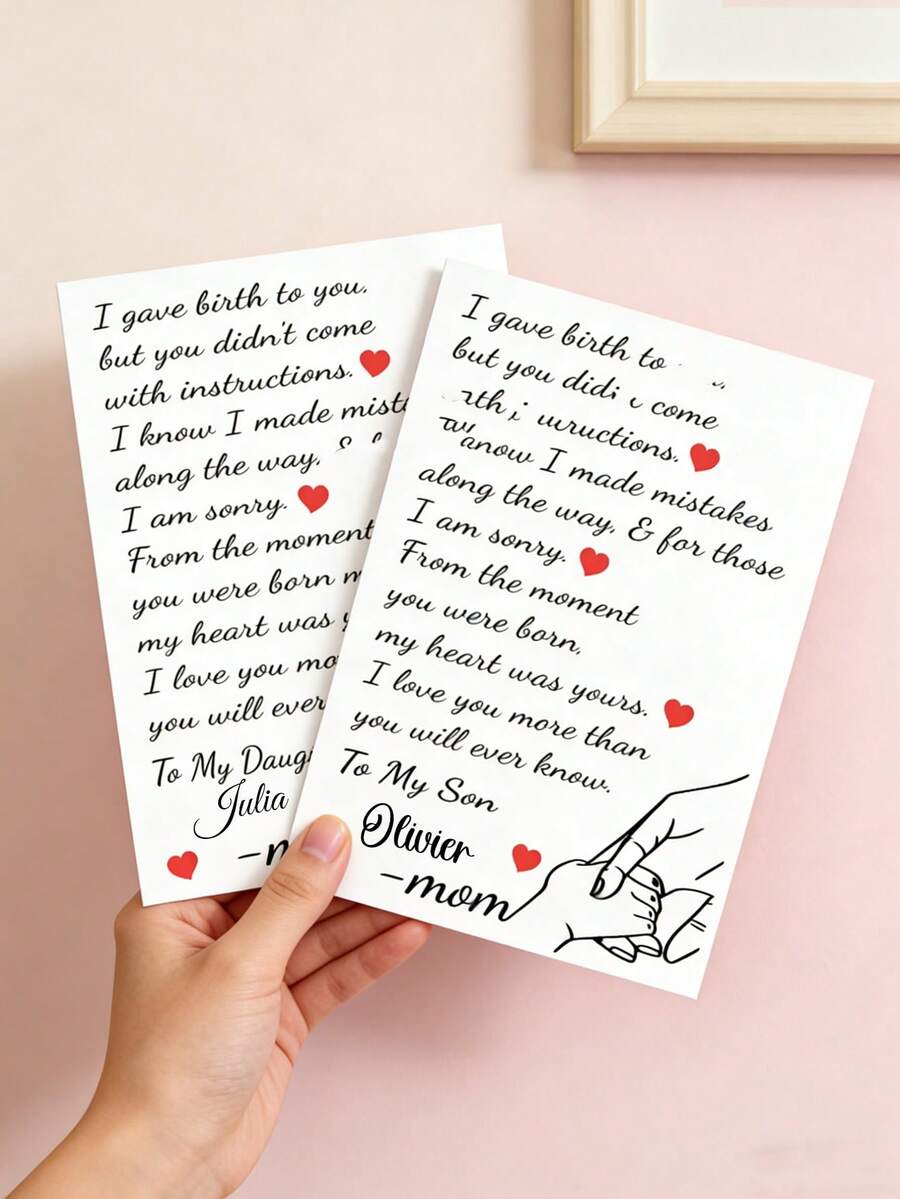 I gave birth to you,
but you didn't come
with instructions.
I know I made
along the way,
I am sorry.
From the moment
you were born
my heart was
I love you
you will ever
To My
Julia
I gave birth to
but you come
I made mistakes
along the way, & for those
I am sorry.
From the moment
you were born,
my heart was yours.
I love you more than
you will ever know.
To My Son
Olivier
-mom